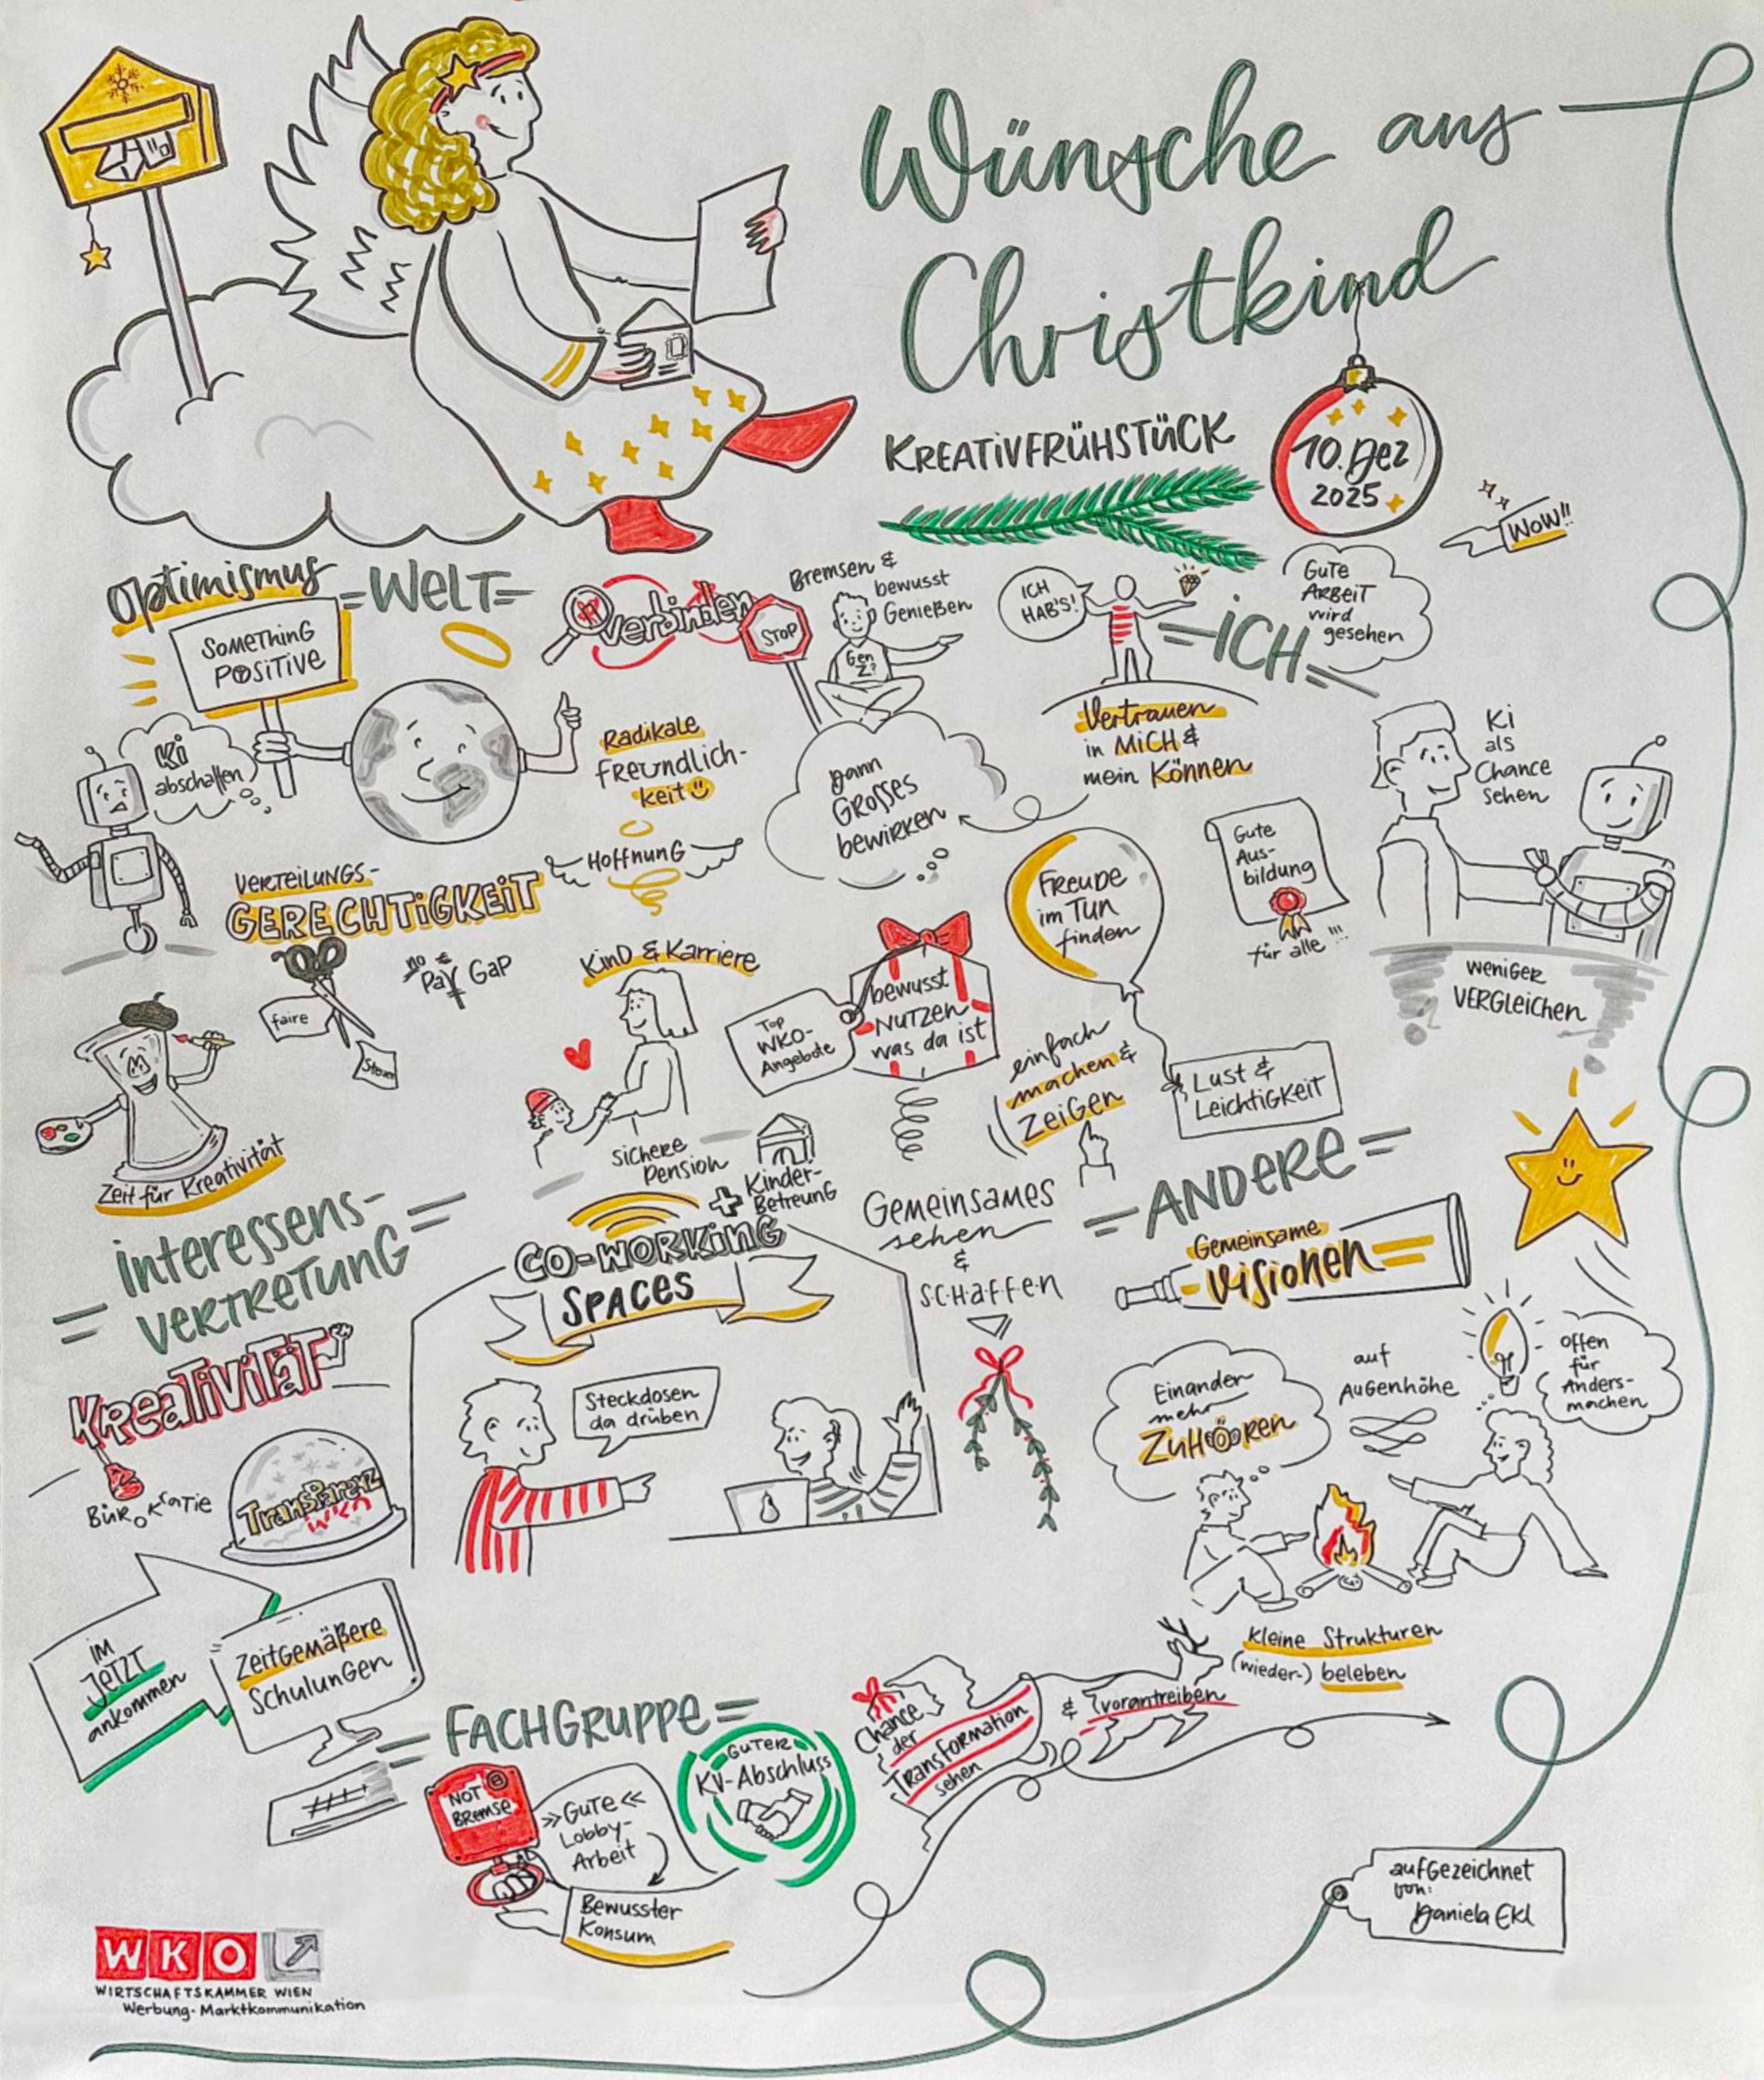 Wünsche ans
Christkind
KREATIVFRÜHSTÜCK
10. Dez
2025
WOW!!
Optimismus
=WELT=
SOMETHING
POSITIVE
verbinden
STOP
Bremsen &
bewusst
Genießen
Gen
Z?
ICH
HAB'S!
=ICH=
GUTE
ARBEIT
wird
gesehen
Ki
abschaffen
Radikale
FREUNDLICH-
keit
dann
GROSSES
bewirken
Vertrauen
in MICH &
mein Können
Ki
als
Chance
Sehen
HOFFNUNG
VERTEILUNGS-
GERECHTIGKEIT
no €
Pay Gap
faire
Steuer
Zeit für Kreativität
KIND & Karriere
sichere
Pension
Top
WKO-
Angebote
bewusst
NUTZEN
was da ist
FREUDE
im TUN
finden
Gute
Aus-
bildung
für alle !!!
weniger
VERGLEICHEN
einfach
machen &
ZEIGEN
LUST &
LEICHTIGKEIT
=interessens-
VERTRETUNG=
+ Kinder-
Betreung
CO-WORKING
SPACES
Steckdosen
da drüben
GEMEINSAMES
sehen
&
SCHAFFEN
=ANDERE=
Gemeinsame
Visionen
Einander
mehr
ZUHÖÖREN
auf
AUGENHÖHE
offen
für
Anders-
machen
KREATIVITÄT
BÜROKRATIE
TRANSPARENZ
WKO
im
JETZT
ankommen
ZEITGEMÄßERE
SCHULUNGEN
=FACHGRUPPE=
NOT
BREMSE
»GUTE«
Lobby-
Arbeit
Bewusster
Konsum
GUTER
KV-Abschluss
Chance
der
TRANSFORMATION
sehen
& vorantreiben
Kleine Strukturen
(wieder-) beleben
aufgezeichnet
von:
Daniela Ekl
WKO
WIRTSCHAFTSKAMMER WIEN
Werbung-Marktkommunikation